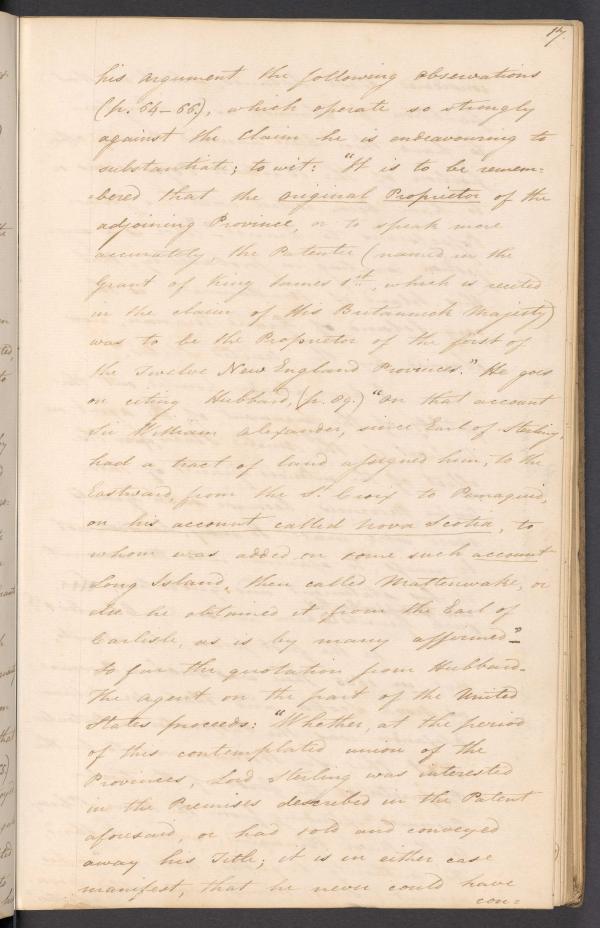 17.
his argument the following observations
(p. 64-66), which operate so strongly
against the Claim he is endeavouring to
substantiate; to wit: "It is to be remem-
bered that the original Proprietor of the
adjoining Province, or to speak more
accurately, the Patentee (named in the
Grant of King James 1st, which is recited
in the claim of His Britannick Majesty)
was to be the Proprietor of the first of
the Twelve New England Provinces." He goes
on citing Hubbard, (p. 89.) "On that account
Sir William Alexander, since Earl of Sterling,
had a tract of land assigned him, to the
Eastward, from the St. Croix to Pemaquid,
on his account called Nova Scotia, to
whom was added on some such account
Long Island, then called Mattenwake, or
else he obtained it from the Earl of
Carlisle, as is by many affirmed"-
to far the quotation from Hubbard.
The agent on the part of the United
States proceeds: "Whether, at the period
of this contemplated union of the
Provinces, Lord Sterling was interested
in the Premises described in the Patent
aforesaid, or had sold and conveyed
away his Title; it is in either case
manifest, that he never could have
con=